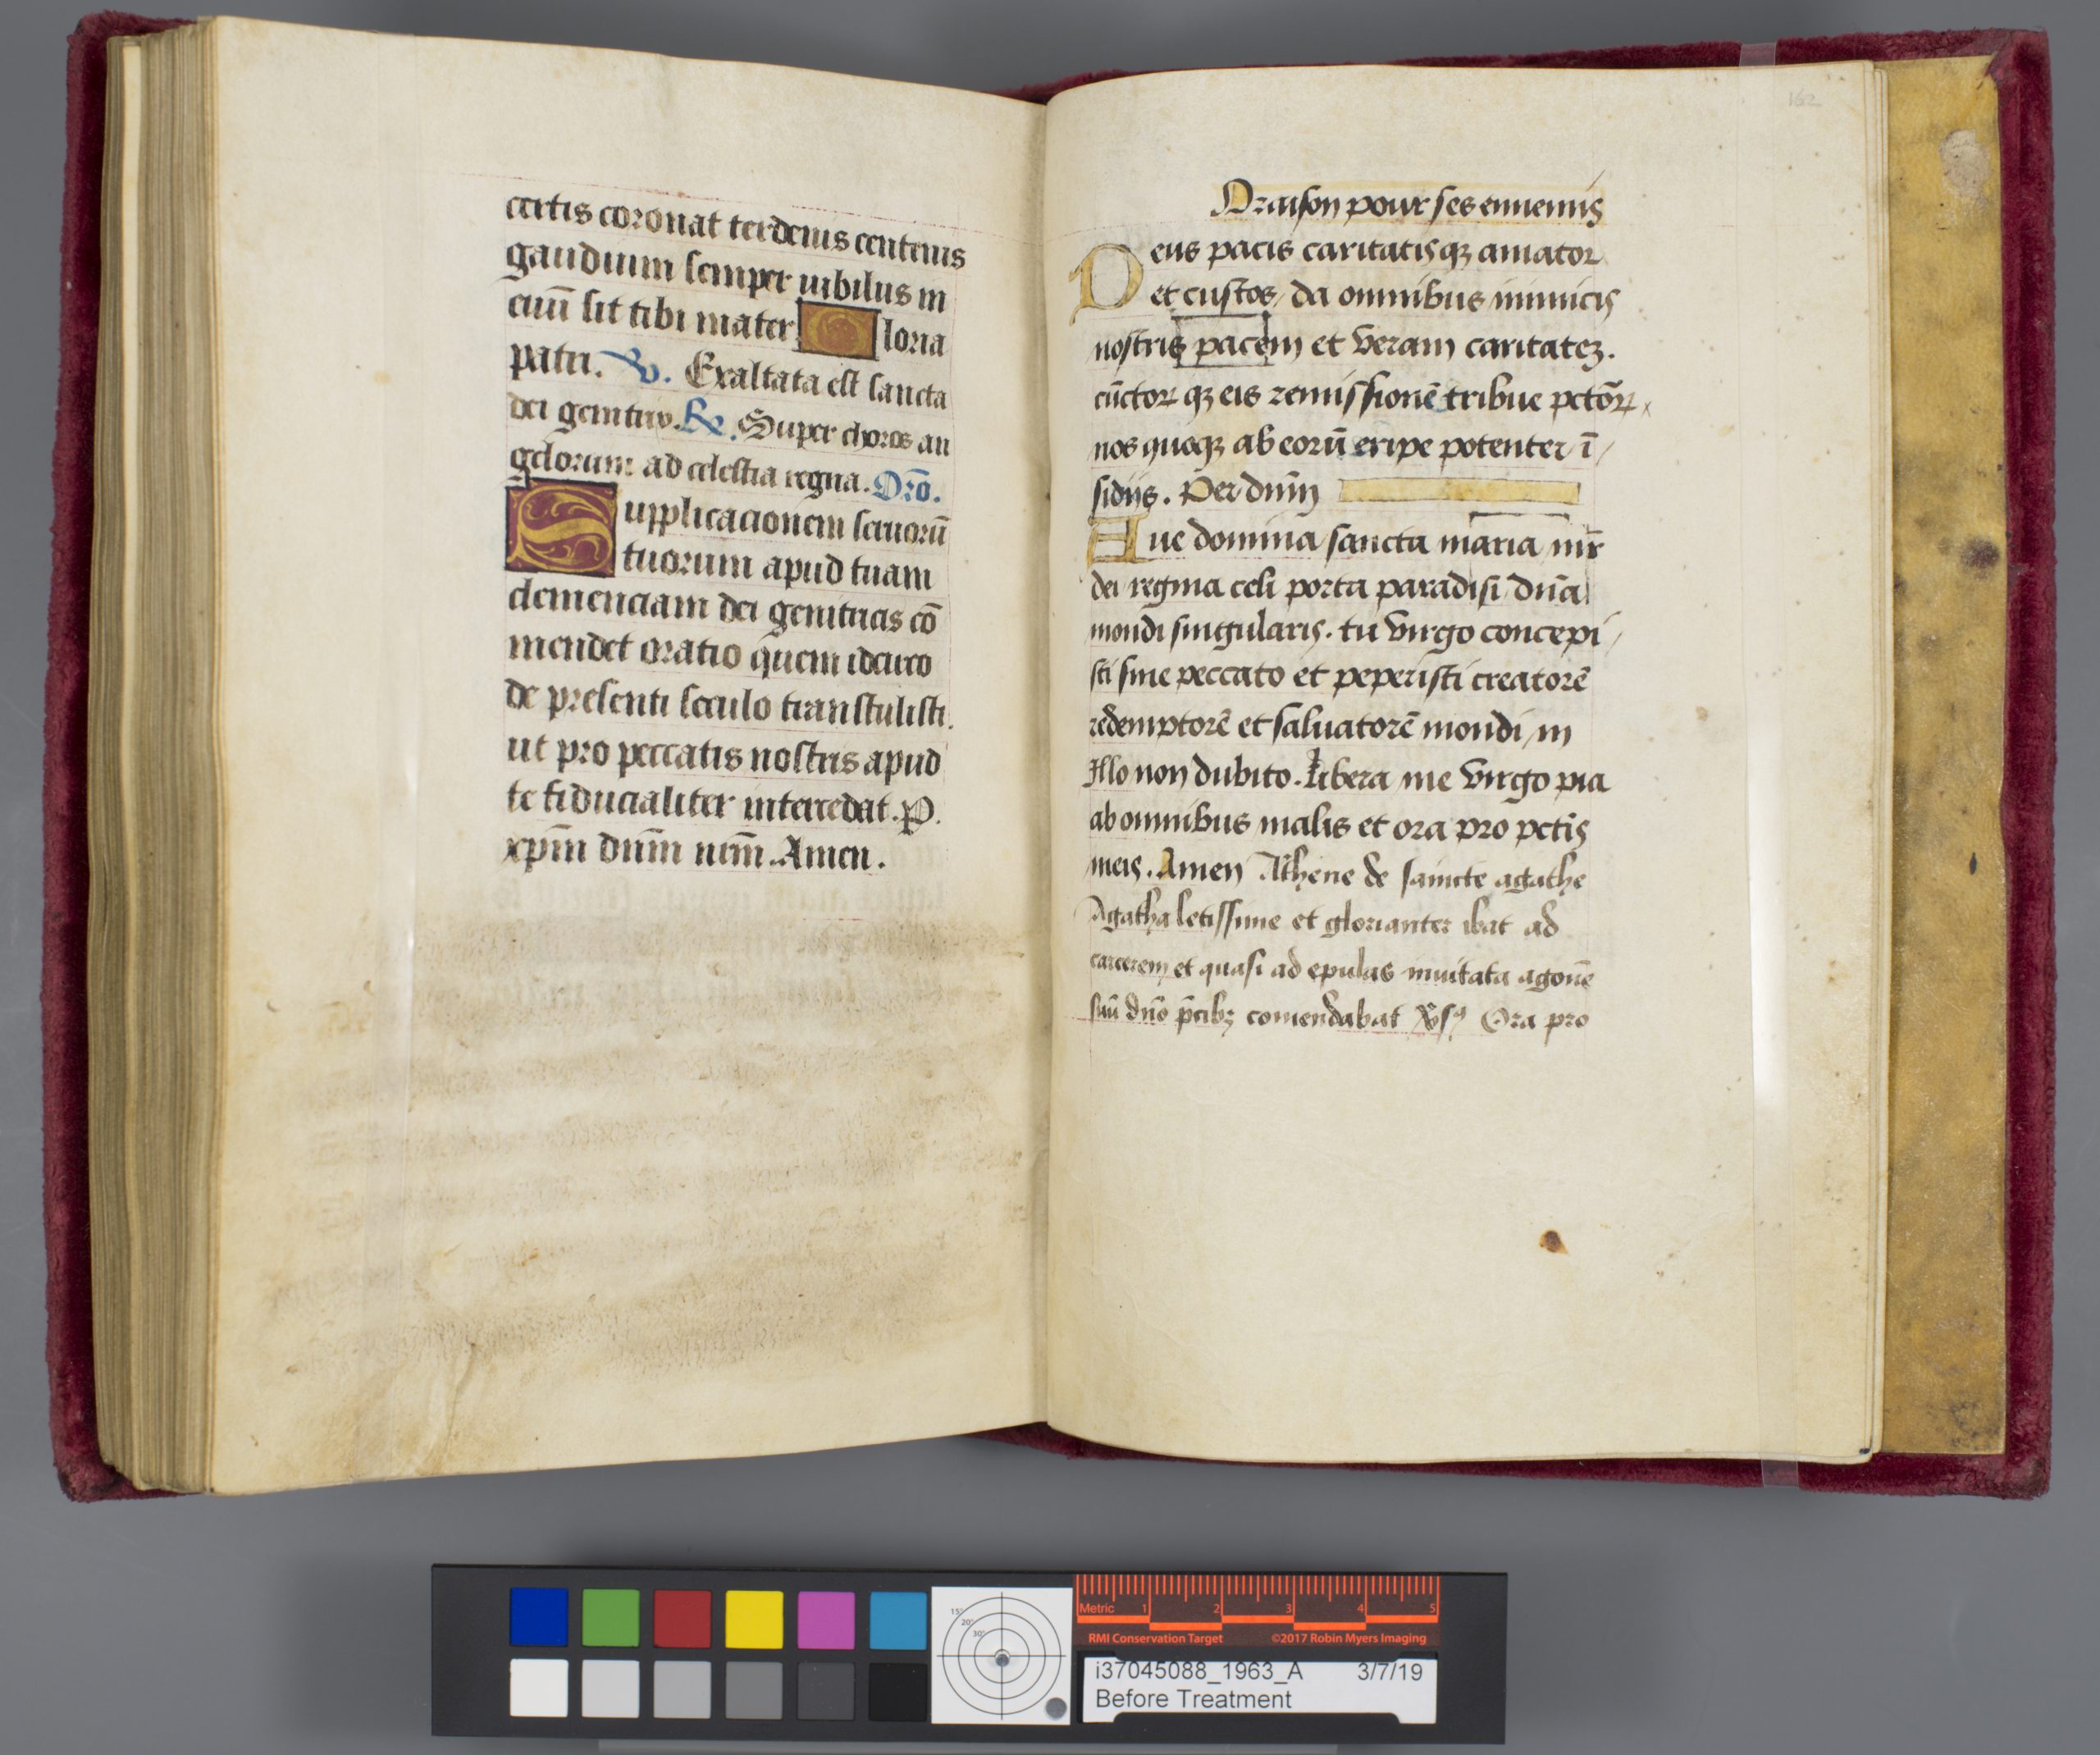 certis coronat terdenis centenis
gaudium semper iubilus in
euū sit tibi mater loria
patri. V. Exaltata est sancta
dei genitrix. R. Super choros an
gelorum ad celestia regna. Orō.
Supplicacionem seruorū
tuorum apud tuam
clemenciam dei genitricis cō
mendet oratio quem idcirco
de presenti seculo transtulisti.
ut pro peccatis nostris apud
te fiducialiter intercedat. P.
xp̄m dn̄m nr̄m. Amen.
162
Oraison pour ses ennemis
Deus pacis caritatisqꝫ amator
et custos, da omnibus inimicis
nostris pacem et veram caritateꝫ.
cūctorꝝ qꝫ eis remissionē tribue pctōꝝ
nos quoqꝫ ab eorū eripe potenter ī/
sidiis. Per dn̄m
Aue domina sancta maria mr̄
dei regina celi porta paradisi dn̄a
mondi singularis. tu virgo concepi/
sti sine peccato et peperisti creatorē
redemptorē et saluatorē mondi/in
Illo non dubito. libera me virgo pia
ab omnibus malis et ora pro pctis
meis. Amen Athene de saincte agathe
Agatha letissime et glorianter ibat ad
carcerem et quasi ad epulas inuitata agonē
suū dn̄o p̄cibꝫ comendabat Ora pro
15° 20° 30°
Metric 1 2 3 4 5
RMI Conservation Target ©2017 Robin Myers Imaging
i37045088_1963_A 3/7/19
Before Treatment